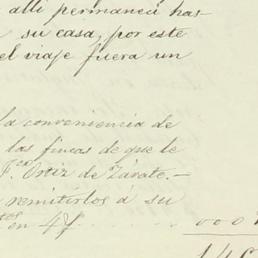 allí permanecí has-
su casa, por este
el viaje fuera un
la conveniencia de
las fincas de que le
Fco Ortiz de Zárate.—
remitirlos á su
en 4 f.